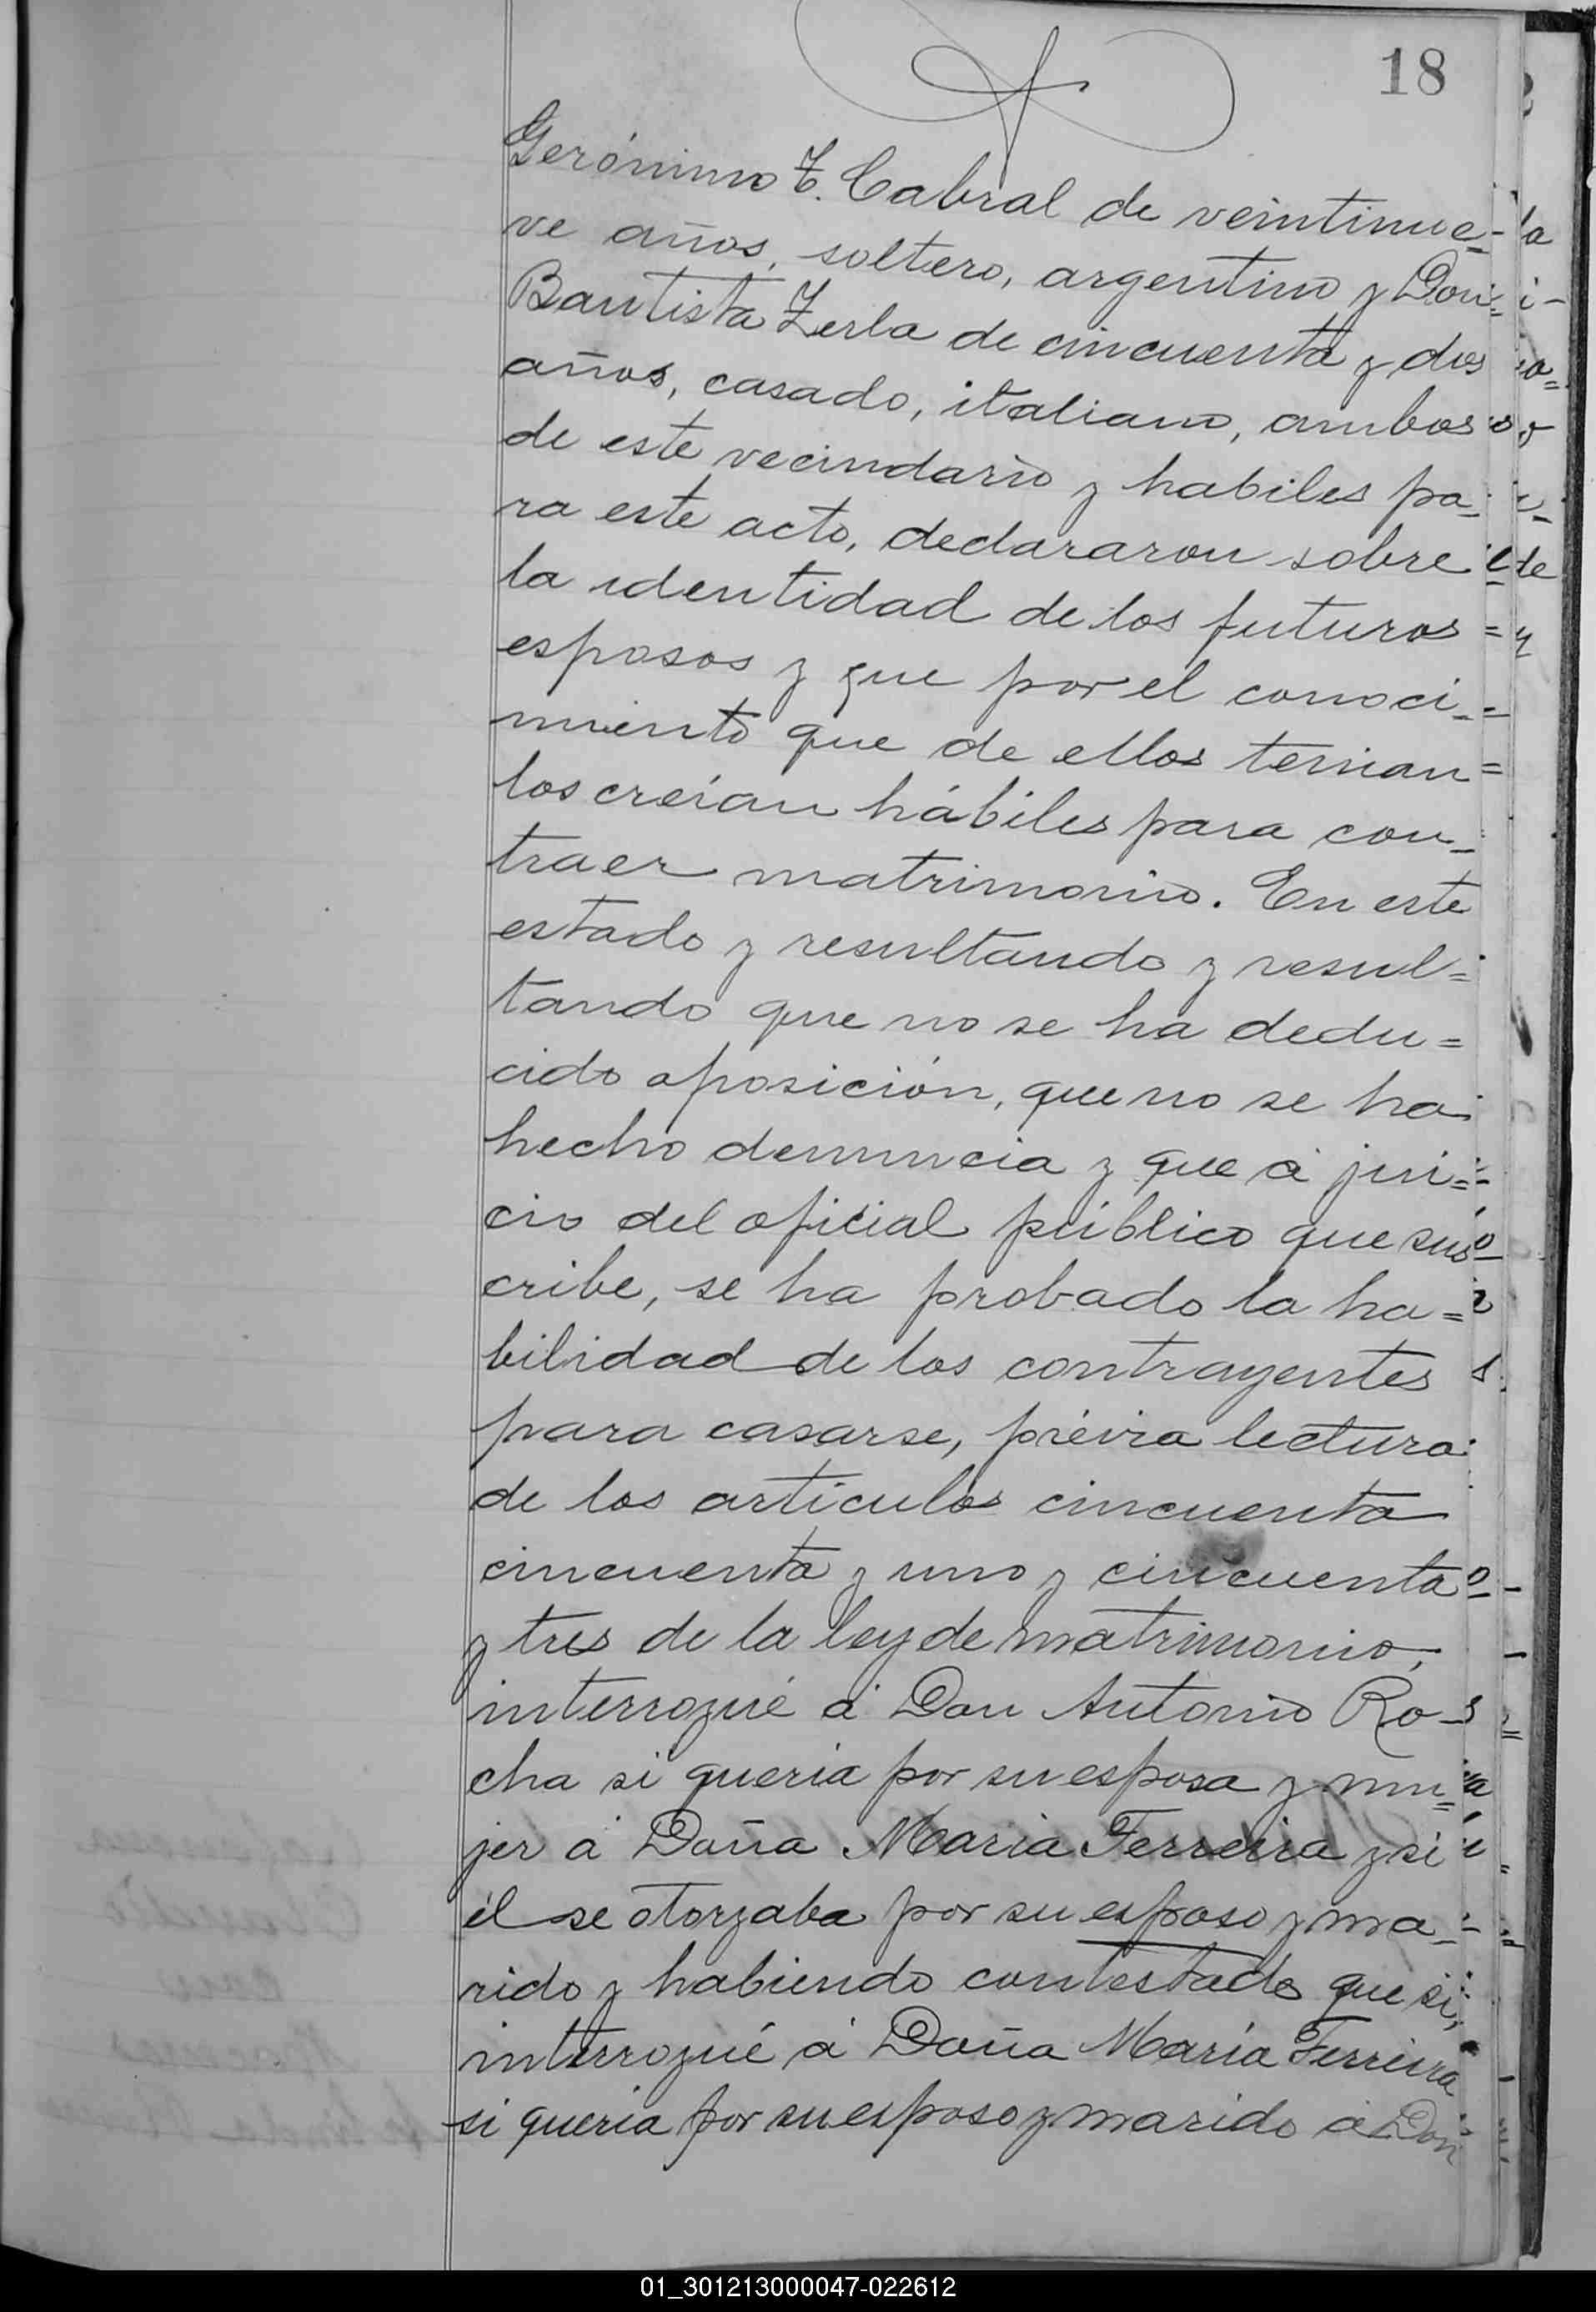 18
Gerónimo T. Cabral de veintinue-
ve años, soltero, argentino y Don
Bautista Zerla de cincuenta y dos
años, casado, italiano, ambos
de este vecindario y habiles pa-
ra este acto, declararon sobre
la identidad de los futuros
esposos y que por el conoci-
miento que de ellos tenian
los creían hábiles para con-
traer matrimonio. En este
estado y resultando y resul=
tando que no se ha dedu=
cido oposición, que no se ha
hecho denuncia y que á jui=
cio del oficial público que sus
cribe, se ha probado la ha=
bilidad de los contrayentes
para casarse, prévia lectura
de los artículos cincuenta
cincuenta y uno y cincuenta
y tres de la ley de matrimonio,
interrogué á Don Antonio Ro-
cha si queria por su esposa y mu=
jer á Doña Maria Ferreira y si
él se otorgaba por su esposo y ma-
rido y habiendo contestado que si,
interrogué á Doña María Ferreira
si queria por su esposo y marido á Don
01_301213000047-022612